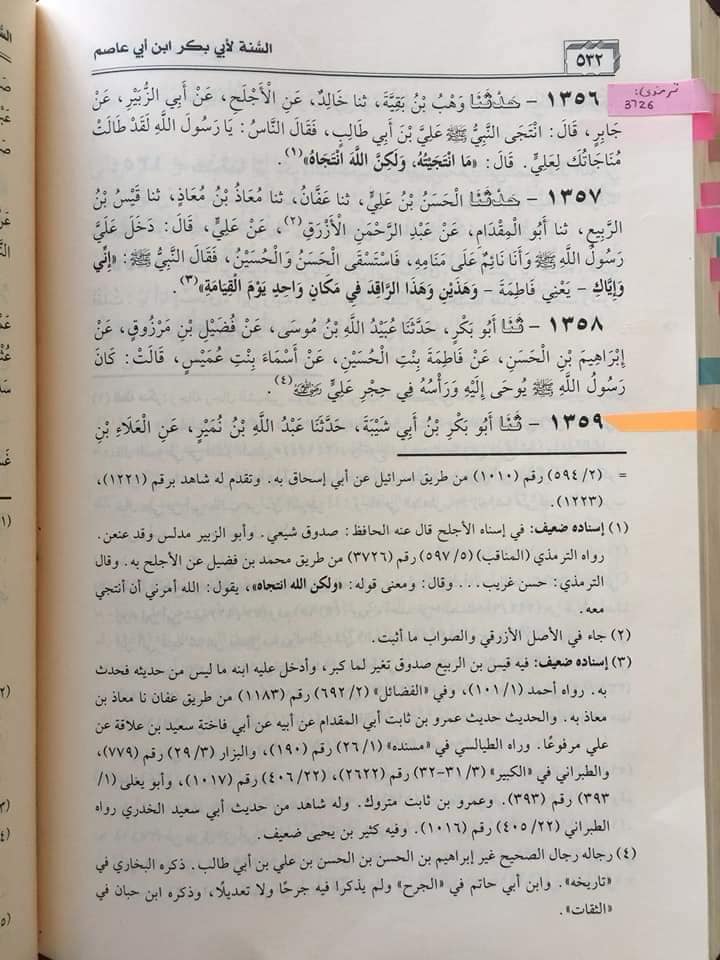 السُّنة لأبي بكر ابن أبي عاصم
٥٣٢
ترمذي:
3726
١٣٥٦ - حَدَّثَنَا وَهْبُ بْنُ بَقِيَّةَ، ثنا خَالِدٌ، عَنِ الْأَجْلَحِ، عَنْ أَبِي الزُّبَيْرِ، عَنْ
جَابِرٍ، قَالَ: انْتَجَى النَّبِيُّ ﷺ عَلِيَّ بْنَ أَبِي طَالِبٍ، فَقَالَ النَّاسُ: يَا رَسُولَ اللَّهِ لَقَدْ طَالَتْ
مُنَاجَاتُكَ لِعَلِيٍّ. قَالَ: «مَا انْتَجَيْتُهُ، وَلَكِنَّ اللَّهَ انْتَجَاهُ»(١).
١٣٥٧ - حَدَّثَنَا الْحَسَنُ بْنُ عَلِيٍّ، ثنا عَفَّانُ، ثنا مُعَاذُ بْنُ مُعَاذٍ، ثنا قَيْسُ بْنُ
الرَّبِيعِ، ثنا أَبُو الْمِقْدَامِ، عَنْ عَبْدِ الرَّحْمَنِ الْأَزْرَقِ(٢)، عَنْ عَلِيٍّ، قَالَ: دَخَلَ عَلَيَّ
رَسُولُ اللَّهِ ﷺ وَأَنَا نَائِمٌ عَلَى مَنَامِهِ، فَاسْتَسْقَى الْحَسَنُ وَالْحُسَيْنُ، فَقَالَ النَّبِيُّ ﷺ: «إِنِّي
وَإِيَّاكِ - يَعْنِي فَاطِمَةَ - وَهَذَيْنِ وَهَذَا الرَّاقِدَ فِي مَكَانٍ وَاحِدٍ يَوْمَ الْقِيَامَةِ»(٣).
١٣٥٨ - ثَنَا أَبُو بَكْرٍ، حَدَّثَنَا عُبَيْدُ اللَّهِ بْنُ مُوسَى، عَنْ فُضَيْلِ بْنِ مَرْزُوقٍ، عَنْ
إِبْرَاهِيمَ بْنِ الْحَسَنِ، عَنْ فَاطِمَةَ بِنْتِ الْحُسَيْنِ، عَنْ أَسْمَاءَ بِنْتِ عُمَيْسٍ، قَالَتْ: كَانَ
رَسُولُ اللَّهِ ﷺ يُوحَى إِلَيْهِ وَرَأْسُهُ فِي حِجْرِ عَلِيٍّ ﵁(٤).
١٣٥٩ - ثَنَا أَبُو بَكْرِ بْنُ أَبِي شَيْبَةَ، حَدَّثَنَا عَبْدُ اللَّهِ بْنُ نُمَيْرٍ، عَنِ الْعَلَاءِ بْنِ
= (٥٩٤/٢) رقم (١٠١٠) من طريق اسرائيل عن أبي إسحاق به. وتقدم له شاهد برقم (١٢٢١)،
(١٢٢٣).
(١) إسناده ضعيف: في إسناه الأجلح قال عنه الحافظ: صدوق شيعي. وأبو الزبير مدلس وقد عنعن.
رواه الترمذي (المناقب) (٥٩٧/٥) رقم (٣٧٢٦) من طريق محمد بن فضيل عن الأجلح به. وقال
الترمذي: حسن غريب... وقال: ومعنى قوله: «ولكن الله انتجاه»، يقول: الله أمرني أن أنتجي
معه.
(٢) جاء في الأصل الأزرقي والصواب ما أثبت.
(٣) إسناده ضعيف: فيه قيس بن الربيع صدوق تغير لما كبر، وأدخل عليه ابنه ما ليس من حديثه فحدث
به. رواه أحمد (١٠١/١)، وفي «الفضائل» (٦٩٢/٢) رقم (١١٨٣) من طريق عفان نا معاذ بن
معاذ به. والحديث حديث عمرو بن ثابت أبي المقدام عن أبيه عن أبي فاختة سعيد بن علاقة عن
علي مرفوعًا. وراه الطيالسي في «مسنده» (٢٦/١) رقم (١٩٠)، والبزار (٢٩/٣) رقم (٧٧٩)،
والطبراني في «الكبير» (٣١/٣-٣٢) رقم (٢٦٢٢)، (٤٠٦/٢٢) رقم (١٠١٧)، وأبو يعلى (١/
٣٩٣) رقم (٣٩٣). وعمرو بن ثابت متروك. وله شاهد من حديث أبي سعيد الخدري رواه
الطبراني (٤٠٥/٢٢) رقم (١٠١٦). وفيه كثير بن يحيى ضعيف.
(٤) رجاله رجال الصحيح غير إبراهيم بن الحسن بن الحسن بن علي بن أبي طالب. ذكره البخاري في
«تاريخه». وابن أبي حاتم في «الجرح» ولم يذكرا فيه جرحًا ولا تعديلًا، وذكره ابن حبان في
«الثقات».